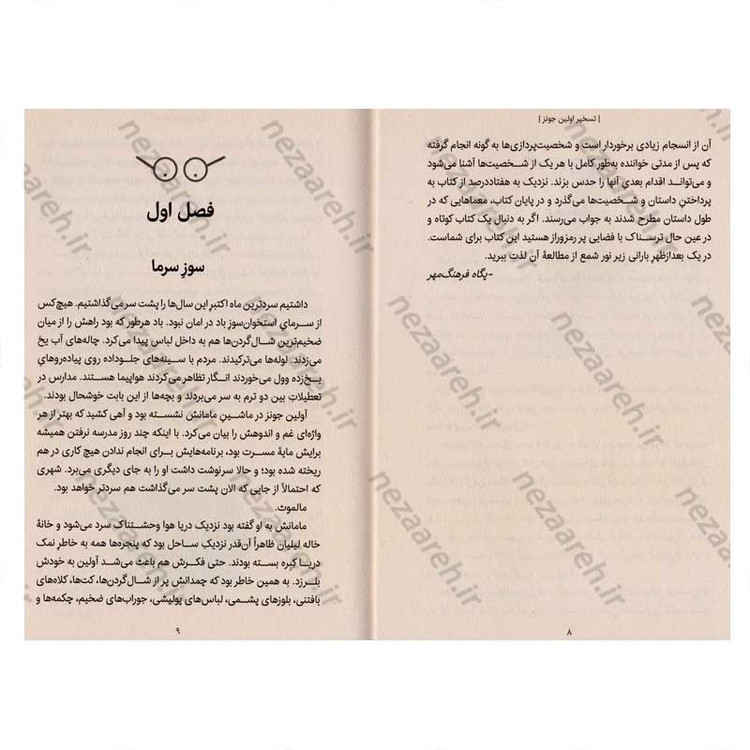 | تسخیر اولین جونز |
آن از انسجام زیادی برخوردار است و شخصیت‌پردازی‌ها به گونه انجام گرفته
که پس از مدتی خواننده به‌طور کامل با هر یک از شخصیت‌ها آشنا می‌شود
و می‌تواند اقدام بعدی آنها را حدس بزند. نزدیک به هفتاددرصد از کتاب به
پرداختنِ داستان و شخصیت‌ها می‌گذرد و در پایان کتاب، معماهایی که در
طول داستان مطرح شدند به جواب می‌رسند. اگر به دنبال یک کتاب کوتاه و
در عین حال ترسناک با فضایی پر رمزوراز هستید این کتاب برای شماست.
در یک بعدازظهرِ بارانی زیر نور شمع از مطالعهٔ آن لذت ببرید.
-پگاه فرهنگ‌مهر
۸
فصل اول
سوزِ سرما
داشتیم سردترین ماه اکتبرِ این سال‌ها را پشت سر می‌گذاشتیم. هیچ‌کس
از سرمایِ استخوان‌سوزِ باد در امان نبود. باد هرطور که بود راهش را از میان
ضخیم‌ترین شال‌گردن‌ها هم به داخل لباس پیدا می‌کرد. چاله‌های آب یخ
می‌زدند. لوله‌ها می‌ترکیدند. مردم با سینه‌های جلوداده روی پیاده‌روهایِ
یخ‌زده وول می‌خوردند انگار تظاهر می‌کردند هواپیما هستند. مدارس در
تعطیلاتِ بین دو ترم به سر می‌بردند و بچه‌ها از این بابت خوشحال بودند.
آولین جونز در ماشینِ مامانش نشسته بود و آهی کشید که بهتر از هر
واژه‌ای غم و اندوهش را بیان می‌کرد. با اینکه چند روز مدرسه نرفتن همیشه
برایش مایهٔ مسرت بود، برنامه‌هایش برای انجام ندادن هیچ کاری در هم
ریخته شده بود؛ و حالا سرنوشت داشت او را به جای دیگری می‌برد. شهری
که احتمالاً از جایی که الان پشت سر می‌گذاشت هم سردتر خواهد بود.
مالموث.
مامانش به او گفته بود نزدیک دریا هوا وحشتناک سرد می‌شود و خانهٔ
خاله لیلیان ظاهراً آن‌قدر نزدیکِ ساحل بود که پنجره‌ها همه به خاطر نمک
دریا کِبره بسته بودند. حتی فکرش هم باعث می‌شد آولین به خودش
بلرزد. به همین خاطر بود که چمدانش پر از شال‌گردن‌ها، کت‌ها، کلاه‌های
بافتنی، بلوزهای پشمی، لباس‌های پولیشی، جوراب‌های ضخیم، چکمه‌ها و
۹
nezaareh.ir
nezaareh.ir
nezaareh.ir
nezaareh.ir
nezaareh.ir
nezaareh.ir
nezaareh.ir
nezaareh.ir
nezaareh.ir
nezaareh.ir
nezaareh.ir
nezaareh.ir